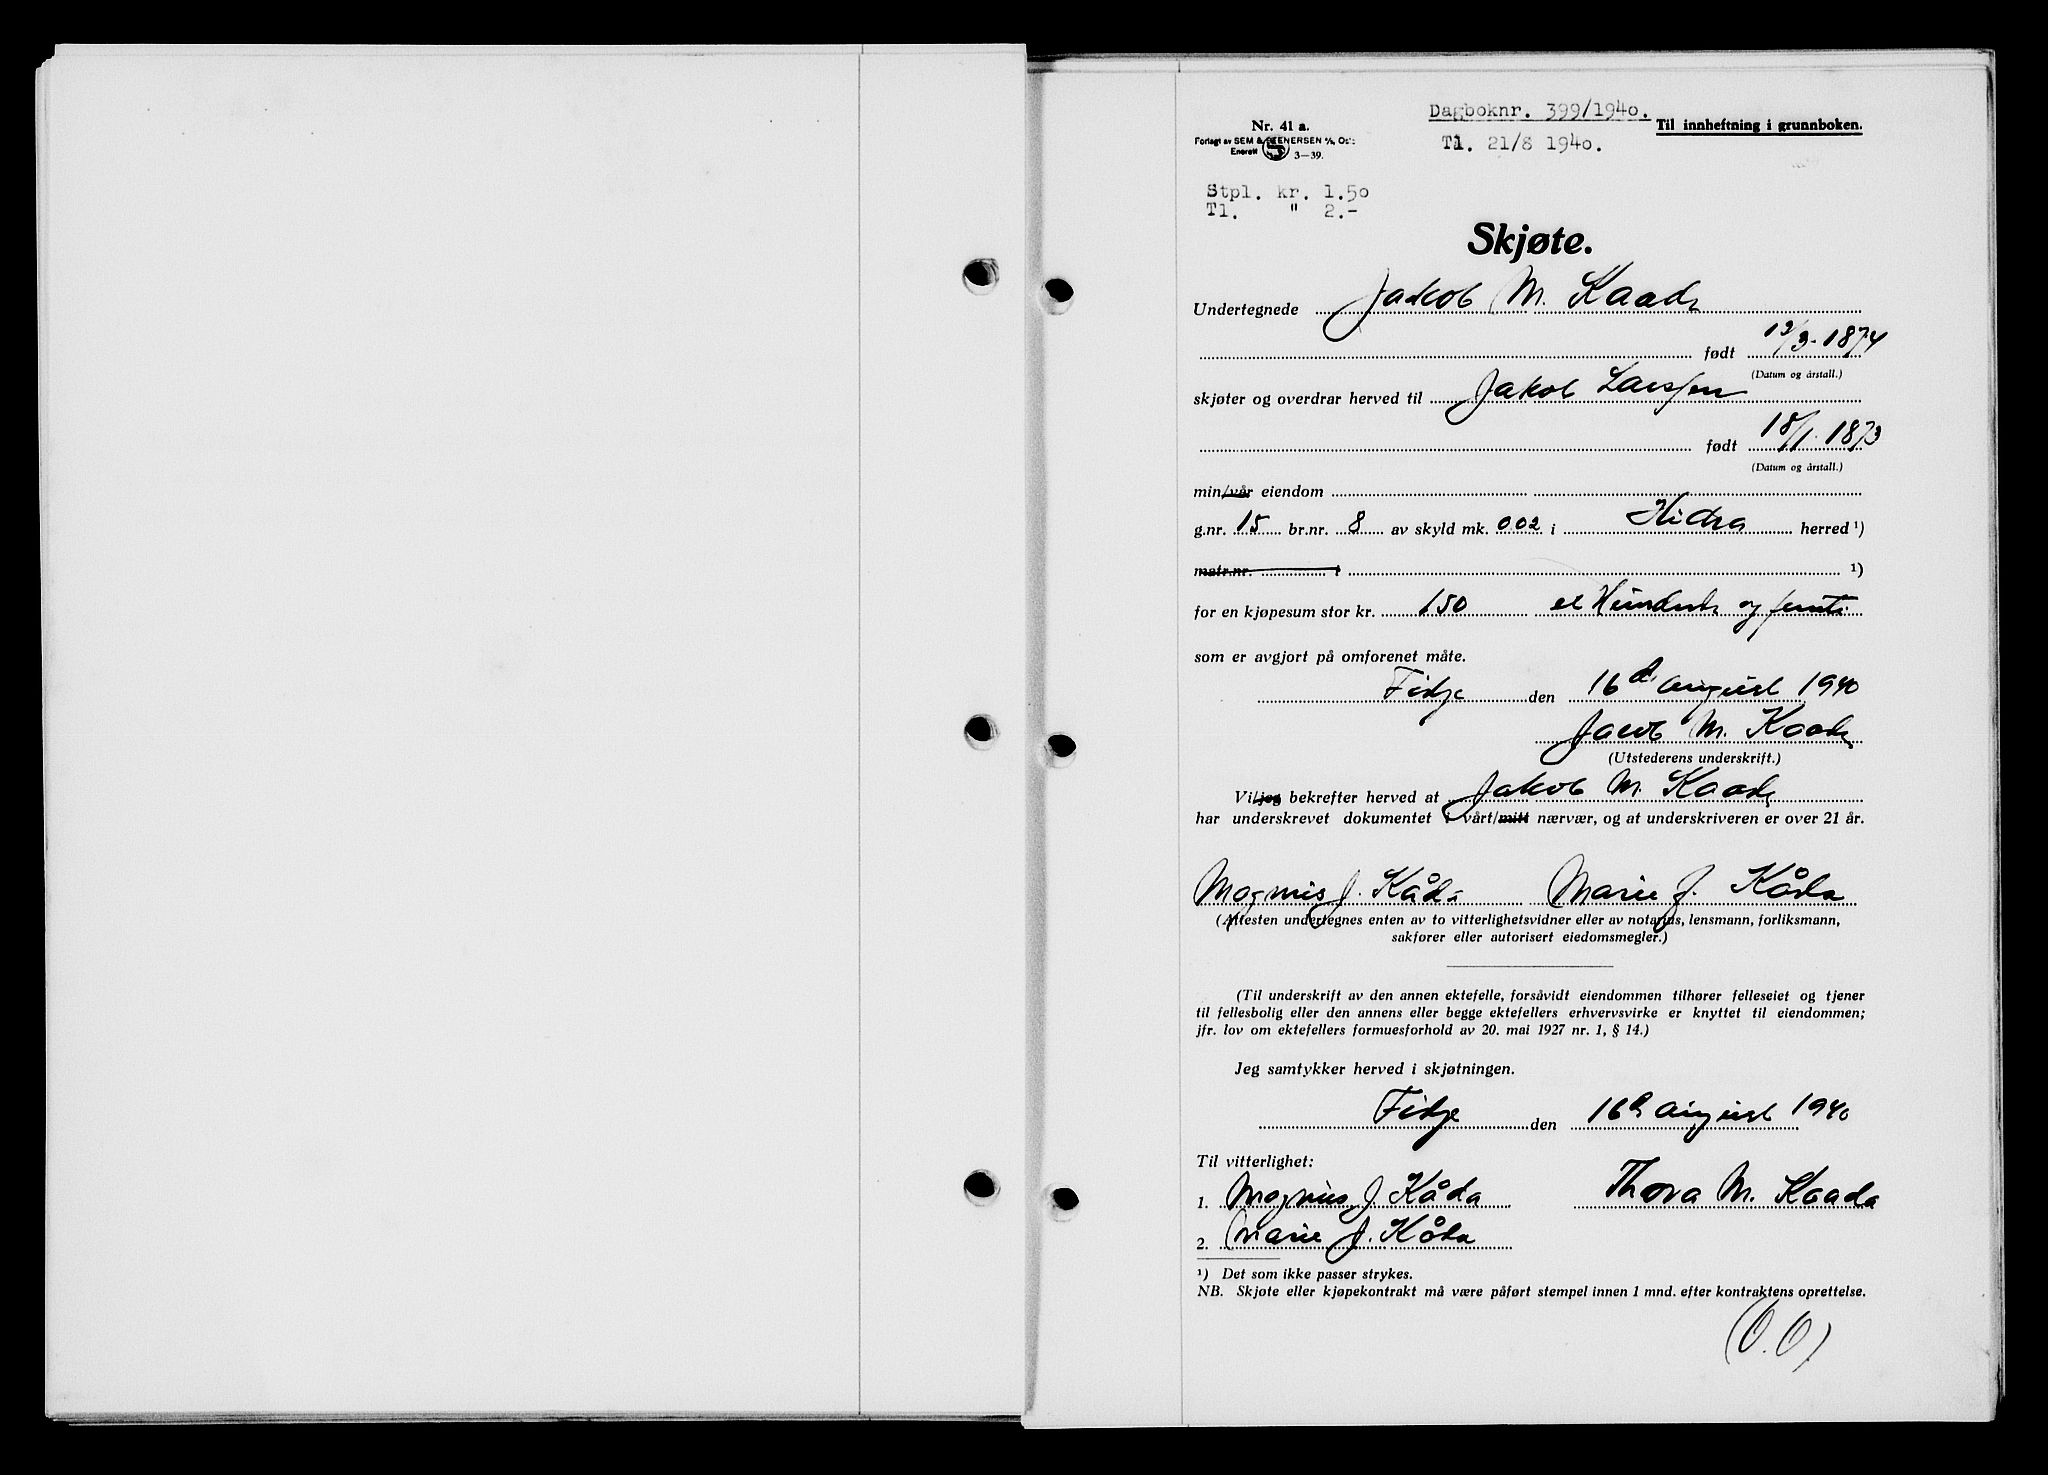 Dagboknr. 399/1940.
Nr. 41 a.
Til innheftning i grunnboken.
Forlagt av SEM & STENERSEN A/S, Oslo
Enerett 3—39.
Tl. 21/8 1940.
Stpl. kr. 1.50
Tl. " 2.-
Skjøte.
Undertegnede Jakob M. Kaada
født 12/3-1874
(Datum og årstall.)
skjøter og overdrar herved til Jakob Larssen
født 18/1.1873
(Datum og årstall.)
min/vår eiendom
g.nr. 15 br.nr. 8 av skyld mk. 002 i Hidra herred ¹)
matr.nr. i ¹)
for en kjøpesum stor kr. 150 et Hundrede og femti
som er avgjort på omforenet måte.
Fidje den 16d august 1940
Jacob M. Kaada
(Utstederens underskrift.)
Vi/jeg bekrefter herved at Jakob M. Kaada
har underskrevet dokumentet i vårt/mitt nærvær, og at underskriveren er over 21 år.
Magnus J. Kåda Marie J. Kåda
(Attesten undertegnes enten av to vitterlighetsvidner eller av notarius, lensmann, forliksmann,
sakfører eller autorisert eiedomsmegler.)
(Til underskrift av den annen ektefelle, forsåvidt eiendommen tilhører felleseiet og tjener
til fellesbolig eller den annens eller begge ektefellers erhvervsvirke er knyttet til eiendommen;
jfr. lov om ektefellers formuesforhold av 20. mai 1927 nr. 1, § 14.)
Jeg samtykker herved i skjøtningen.
Fidje den 16d august 1940
Til vitterlighet:
1. Magnus J. Kåda Thora M. Kaada
2. Marie J. Kåda
¹) Det som ikke passer strykes.
NB. Skjøte eller kjøpekontrakt må være påført stempel innen 1 mnd. efter kontraktens oprettelse.
(O.O)